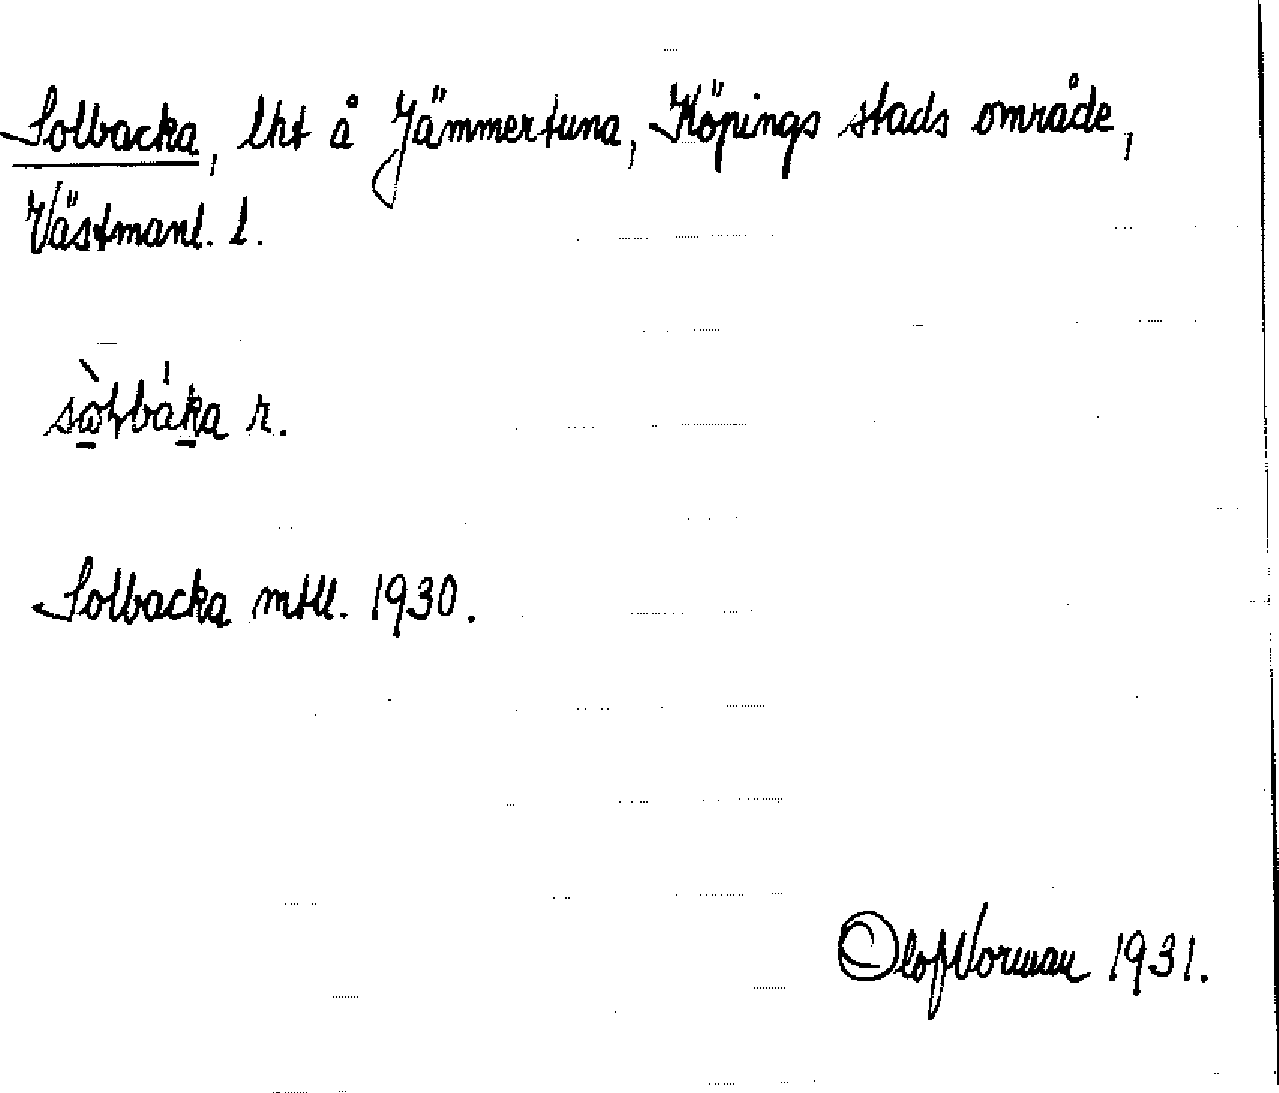 Solbacka, lht å Jämmertuna, Köpings stads område,
Västmanl. l.
r.
Solbacka mtll. 1930.
Olof Norman 1931.